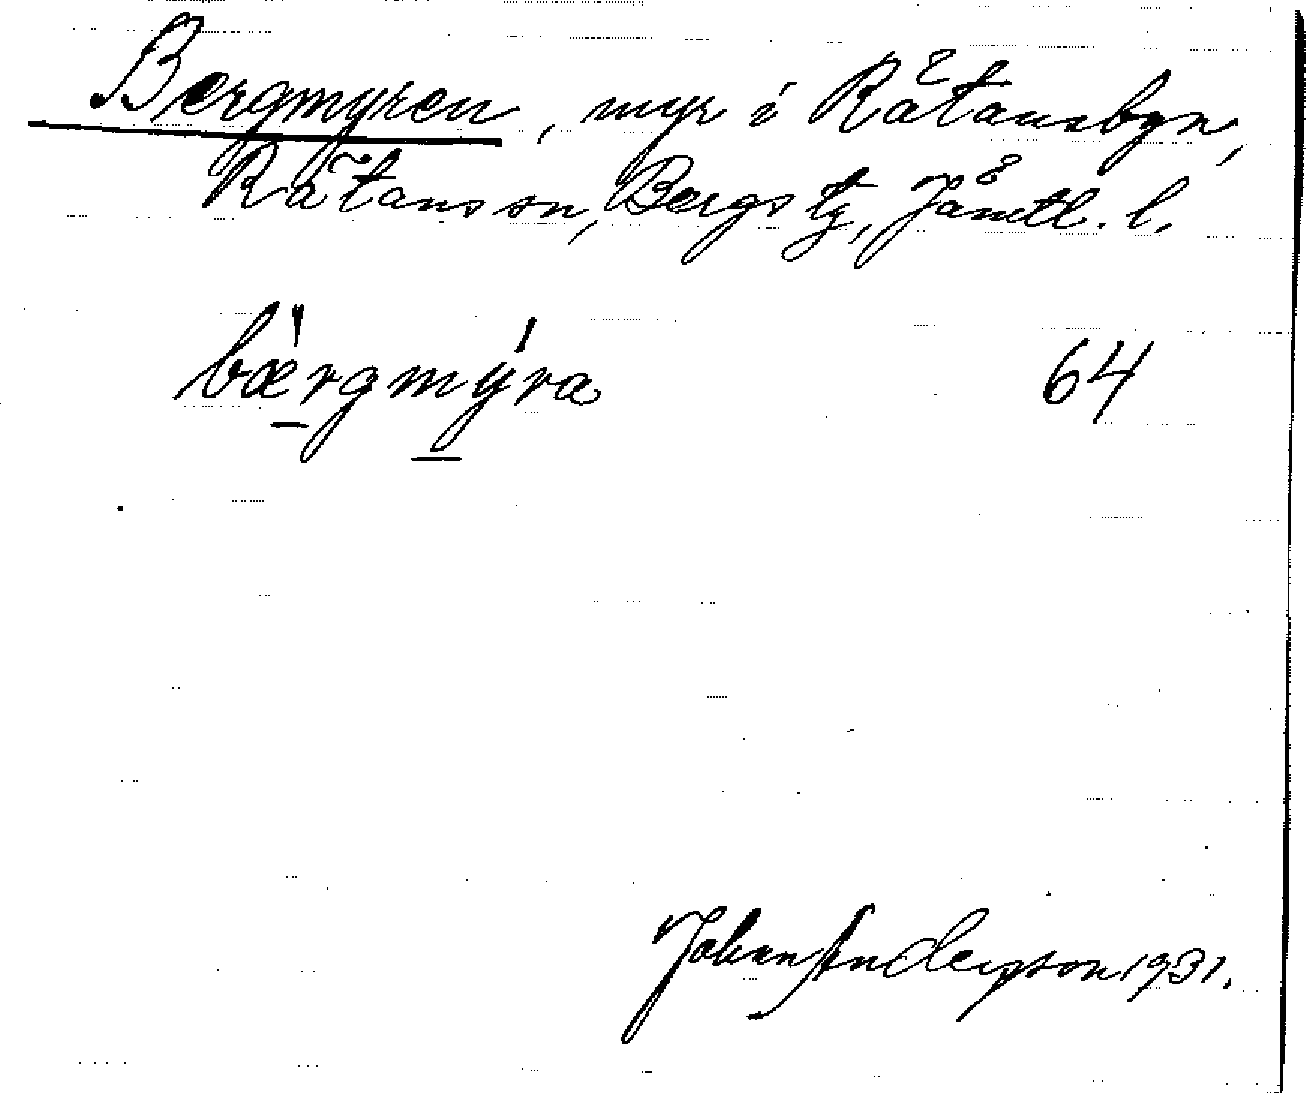 Bergmyren, myr i Rätansbyn,
Rätans sn, Bergs tg, Jämtl. l.
bærgmýra 64
Johan Anderson 1931.